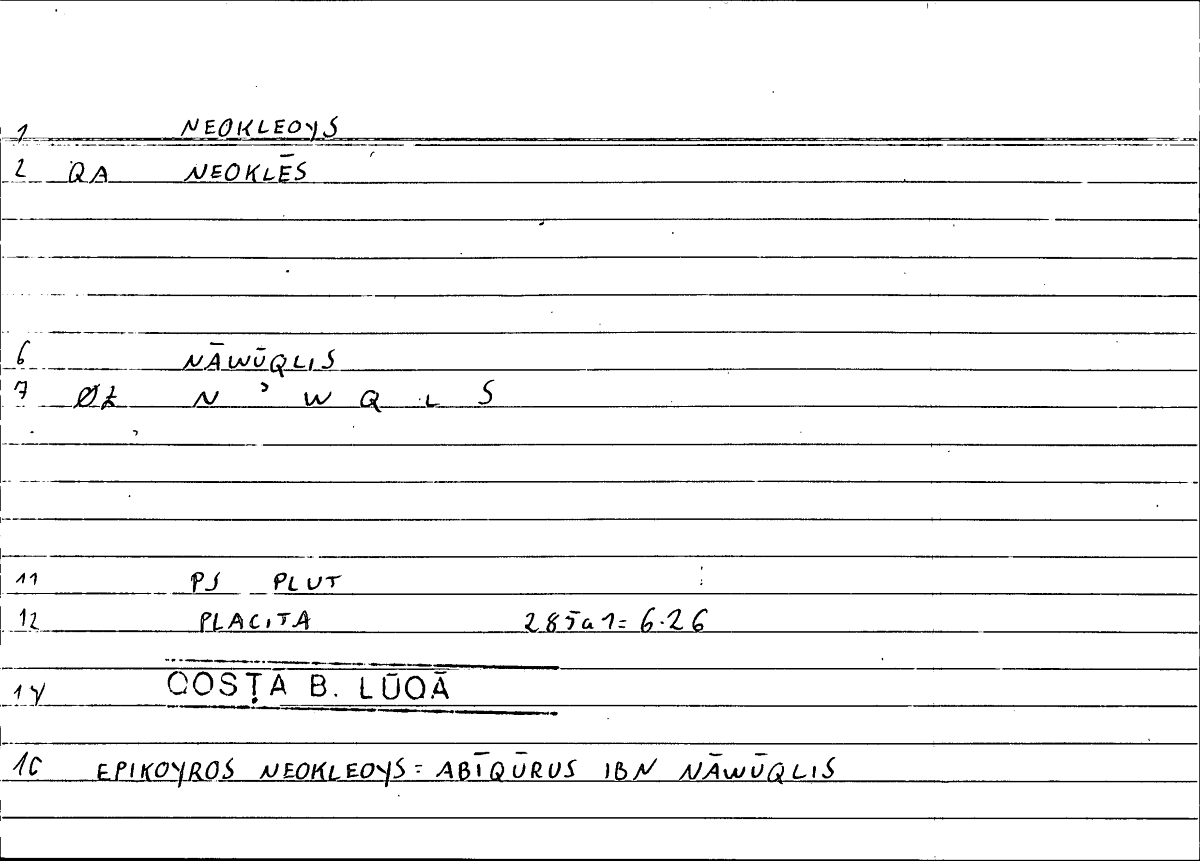 1 NEOKLEOYS
2 QA NEOKLĒS
6 NĀWŪQLIS
7 N ʾ W Q L S
11 PS PLUT
12 PLACITA 285a1= 6.26
14 QOSṬĀ B. LŪQĀ
16 EPIKOYROS NEOKLEOYS = ABĪQŪRUS IBN NĀWŪQLIS